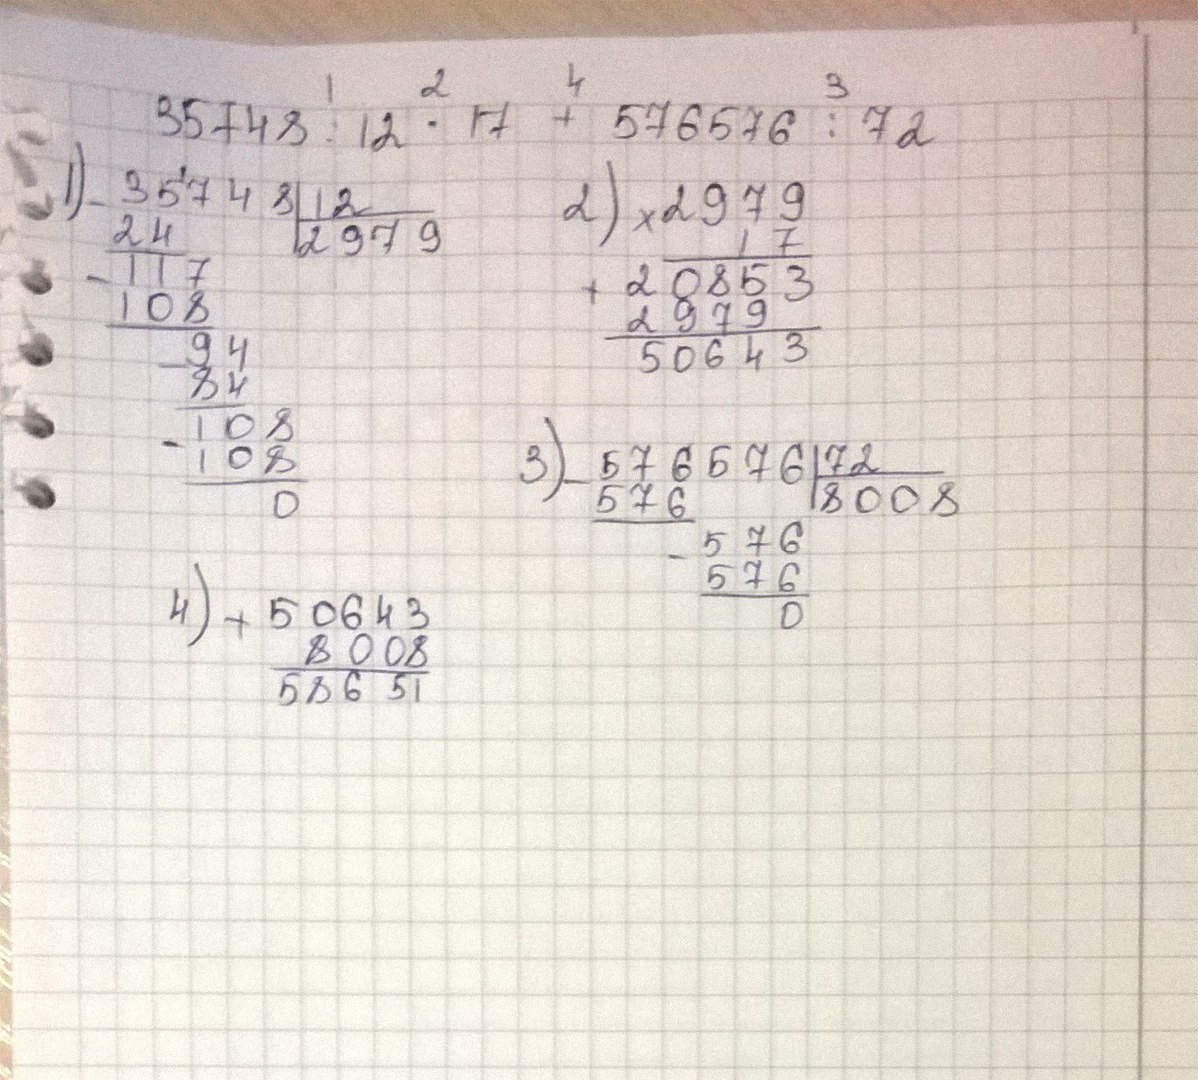 1 2 4 3
35748 : 12 · 17 + 576576 : 72
1) - 35748 | 12
24 | 2979
- 117
108
- 94
84
- 108
108
0
2) × 2979
17
+ 20853
2979
50643
3) - 576576 | 72
576 | 8008
- 576
576
0
4) + 50643
8008
58651